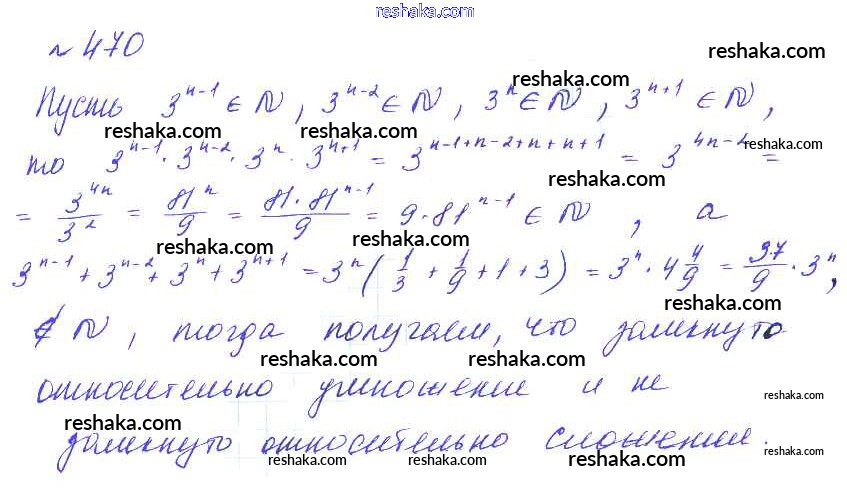 reshaka.com
№ 470
reshaka.com
Пусть 3^{n-1} ∈ N, 3^{n-2} ∈ N, 3^n ∈ N, 3^{n+1} ∈ N,
reshaka.com reshaka.com reshaka.com reshaka.com reshaka.com
то 3^{n-1} · 3^{n-2} · 3^n · 3^{n+1} = 3^{n-1+n-2+n+n+1} = 3^{4n-2} =
reshaka.com
= \frac{3^{4n}}{3^2} = \frac{81^n}{9} = \frac{81 · 81^{n-1}}{9} = 9 · 81^{n-1} ∈ N, а
reshaka.com reshaka.com
3^{n-1} + 3^{n-2} + 3^n + 3^{n+1} = 3^n (\frac{1}{3} + \frac{1}{9} + 1 + 3) = 3^n · 4\frac{4}{9} = \frac{37}{9} · 3^n,
reshaka.com
∉ N, тогда получаем, что замкнуто
reshaka.com reshaka.com reshaka.com
относительно умножение и не
reshaka.com reshaka.com
замкнуто относительно сложении.
reshaka.com reshaka.com reshaka.com reshaka.com reshaka.com